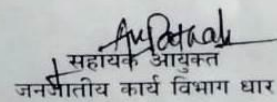 सहायक आयुक्त
जनजातीय कार्य विभाग धार